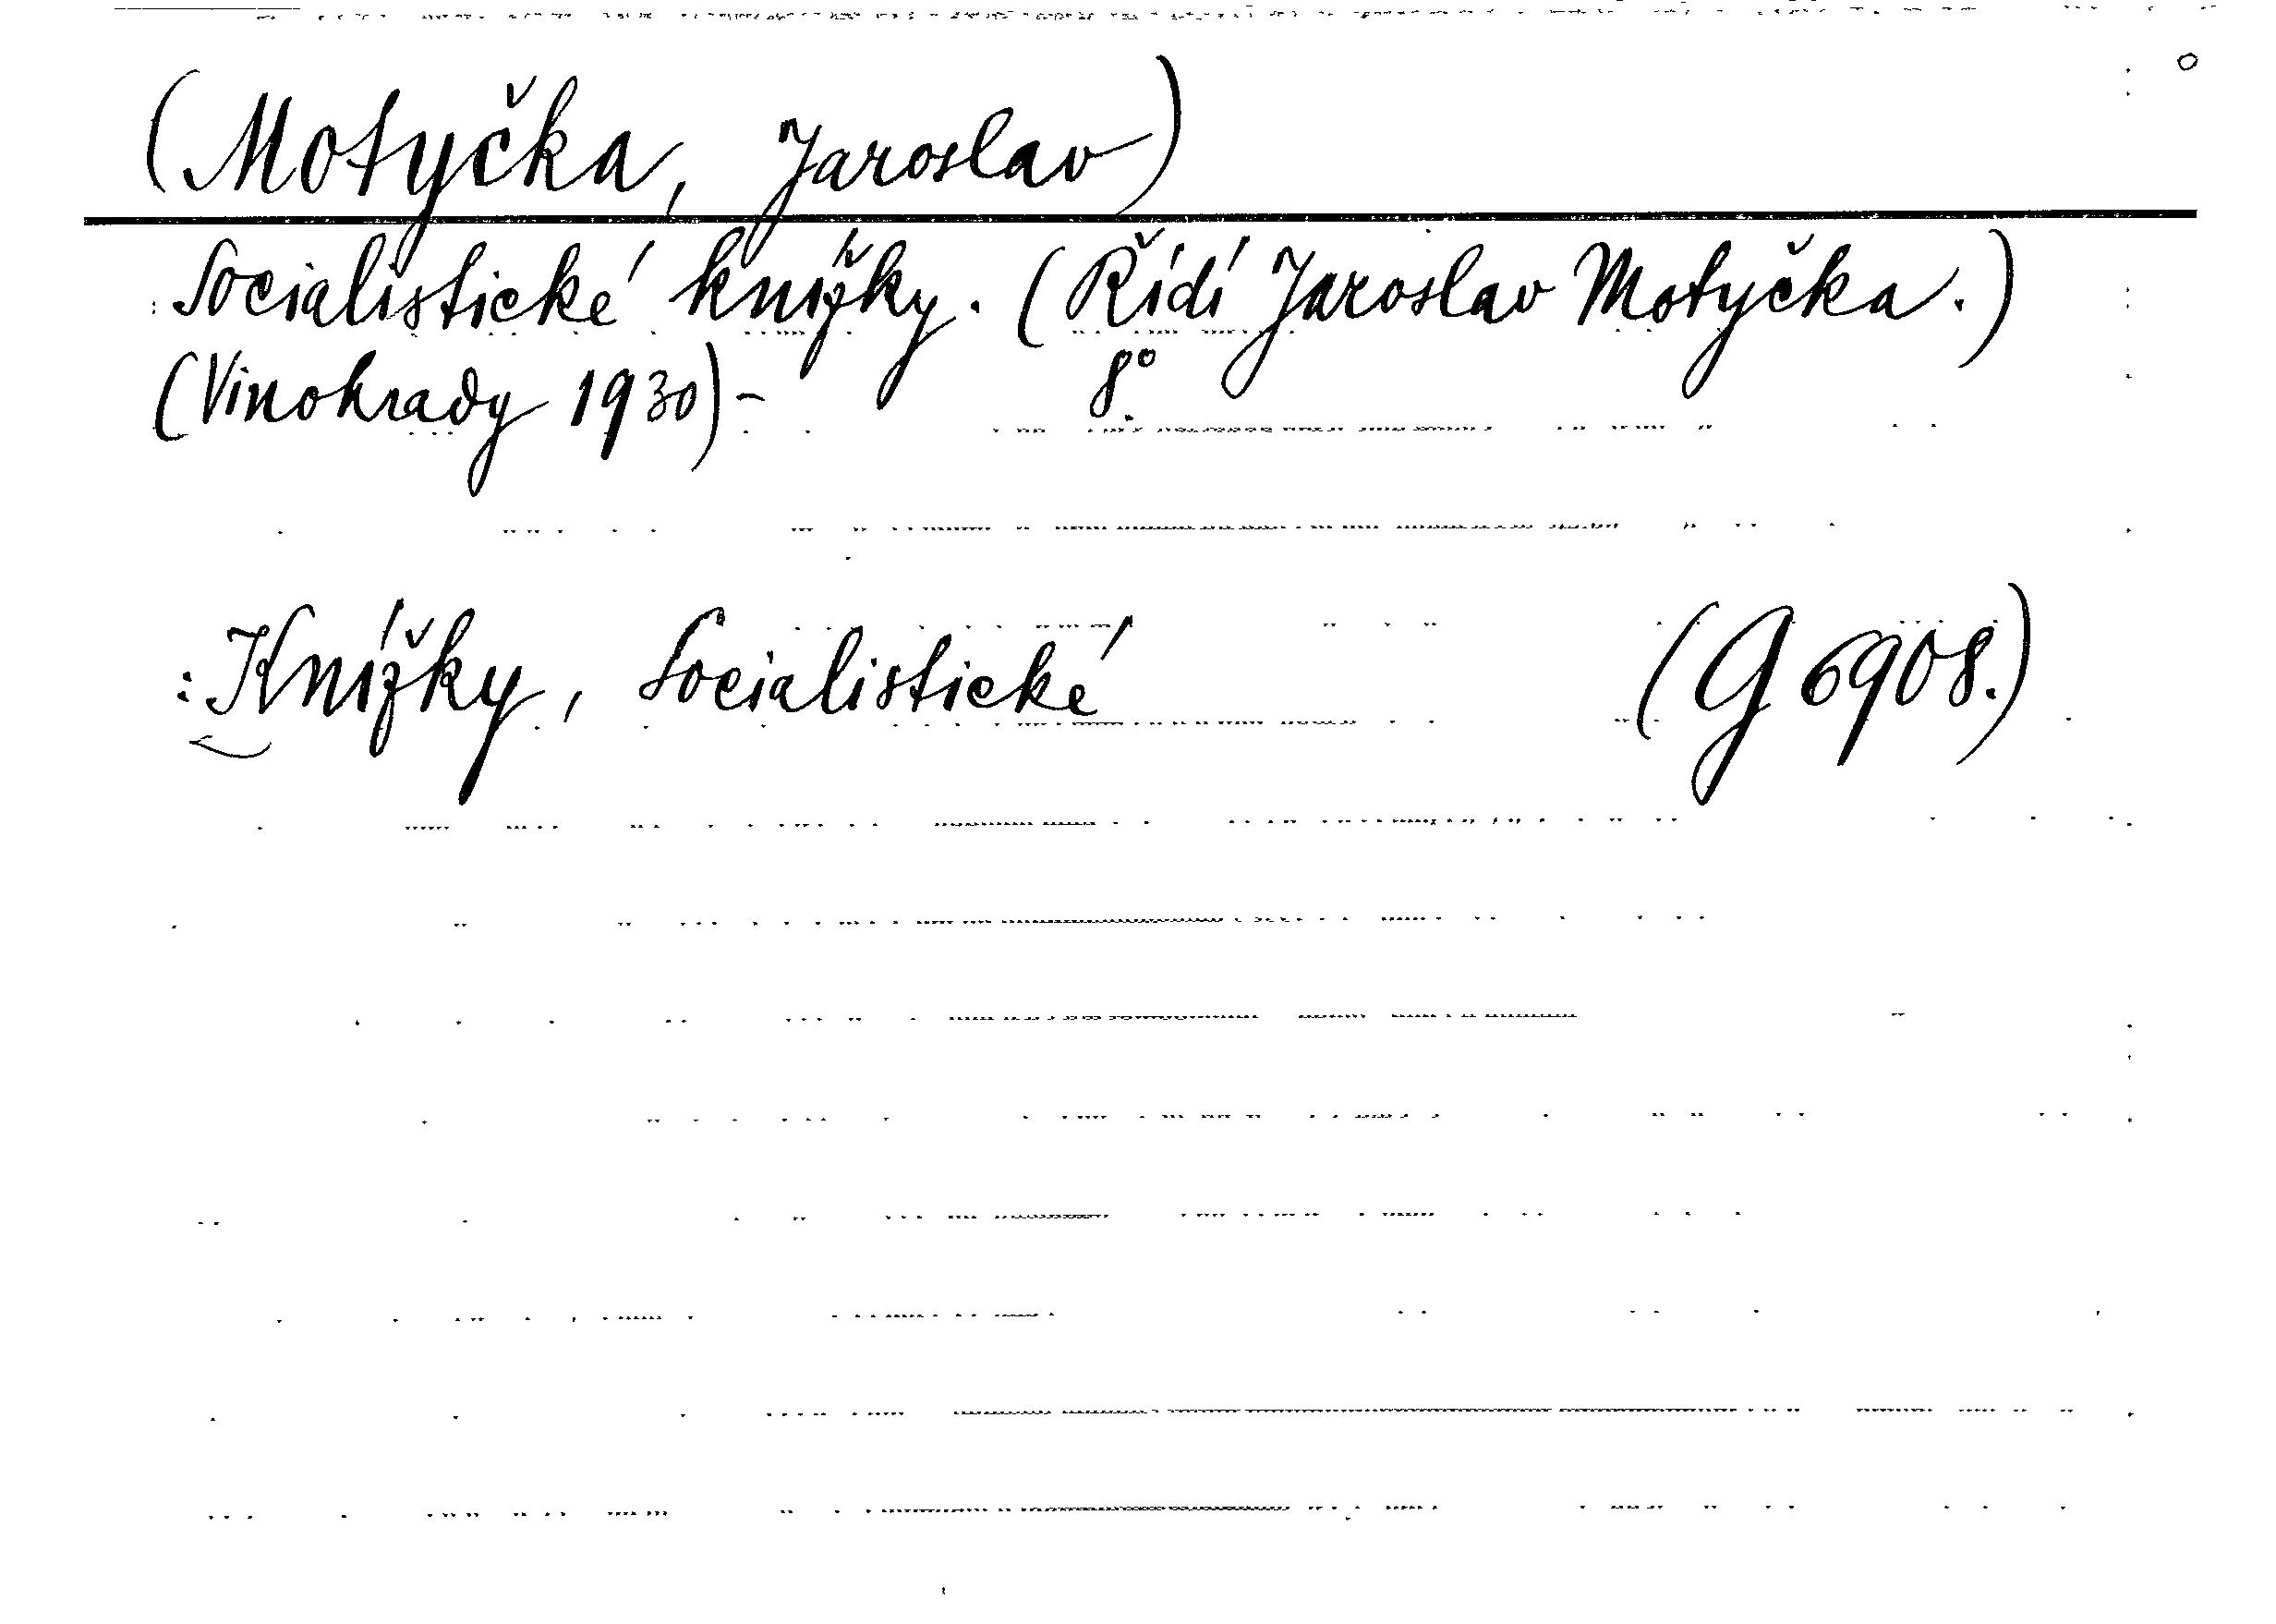 (Motyčka, Jaroslav)
Socialistické knížky. (Řídí Jaroslav Motyčka.)
(Vinohrady 1930)- 8°
:Knížky, Socialistické (G 6908.)